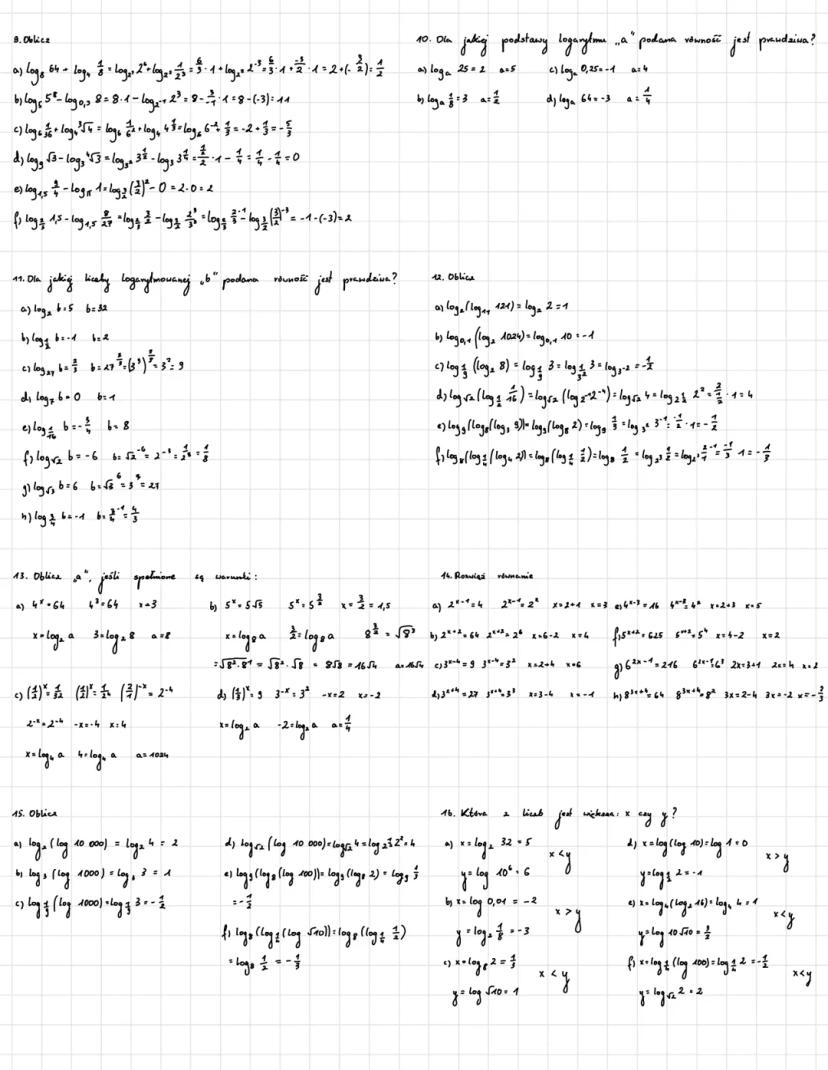 9. Oblicz
a) log₈ 64 + log₄ 1/8 = log₂³ 2⁶ + log₂² 1/2³ = 6/3 · 1 + log₂² 2⁻³ = 6/3 · 1 + -3/2 · 1 = 2 + (- 3/2) = 1/2
b) log₅ 5⁸ - log₀,₅ 8 = 8 · 1 - log₂⁻¹ 2³ = 8 - 3/-1 · 1 = 8 - (-3) = 11
c) log₆ 1/36 + log₄ ³√4 = log₆ 1/6² + log₄ 4^1/3 = log₆ 6⁻² + 1/3 = -2 + 1/3 = - 5/3
d) log₉ √3 - log₃ ⁴√3 = log₃² 3^1/2 - log₃ 3^1/4 = 1/2/2 · 1 - 1/4 = 1/4 - 1/4 = 0
e) log₁,₅ 9/4 - log_π 1 = log_3/2 (3/2)² - 0 = 2 - 0 = 2
f) log_2/3 1,5 - log₁,₅ 8/27 = log_2/3 3/2 - log_3/2 2³/3³ = log_2/3 2/3⁻¹ - log_3/2 (3/2)⁻³ = -1 - (-3) = 2
10. Dla jakiej podstawy logarytmu „a" podana równość jest prawdziwa?
a) logₐ 25 = 2 a = 5 c) logₐ 0,25 = -1 a = 4
b) logₐ 1/8 = 3 a = 1/2 d) logₐ 64 = -3 a = 1/4
11. Dla jakiej liczby logarytmowanej „b" podana równość jest prawdziwa?
a) log₂ b = 5 b = 32
b) log_1/2 b = -1 b = 2
c) log₂₇ b = 2/3 b = 27^2/3 = (3³)^2/3 = 3² = 9
d) log₇ b = 0 b = 1
e) log_1/16 b = - 3/4 b = 8
f) log_√2 b = -6 b = √2⁻⁶ = 2⁻³ = 1/2³ = 1/8
g) log_√3 b = 6 b = √3⁶ = 3³ = 27
h) log_3/4 b = -1 b = 3/4⁻¹ = 4/3
12. Oblicz
a) log₂ (log₁₁ 121) = log₂ 2 = 1
b) log₀,₁ (log₂ 1024) = log₀,₁ 10 = -1
c) log_1/9 (log₂ 8) = log_1/9 3 = log_1/3² 3 = log₃⁻² = - 1/2
d) log_√2 (log_1/2 1/16) = log_√2 (log₂⁻¹ 2⁻⁴) = log_√2 4 = log₂^1/2 2² = 2/1/2 · 1 = 4
e) log₉ (log₈ (log₃ 9)) = log₉ (log₈ 2) = log₉ 1/3 = log₃² 3⁻¹ = -1/2 · 1 = - 1/2
f) log₈ (log_1/4 (log₄ 2)) = log₈ (log_1/4 1/2) = log₈ 1/2 = log₂³ 1/2 = log₂³ 2/1⁻¹ = -1/3 · 1 = - 1/3
13. Oblicz „a", jeśli spełnione są warunki:
a) 4ˣ = 64 4³ = 64 x = 3
x = log₂ a 3 = log₂ 8 a = 8
b) 5ˣ = 5√5 5ˣ = 5^3/2 x = 3/2 = 1,5
x = log₈ a 3/2 = log₈ a 8^3/2 = √8³
= √8² · 8¹ = √8² · √8 = 8√8 = 16√4 a = 16√4
c) (1/2)ˣ = 1/32 (1/2)ˣ = 1/2⁴ (2/1)⁻ˣ = 2⁻⁴
2⁻ˣ = 2⁻⁴ -x = -4 x = 4
x = log₄ a 4 = log₄ a a = 1024
d) (1/3)ˣ = 9 3⁻ˣ = 3² -x = 2 x = -2
x = log₂ a -2 = log₂ a a = 1/4
14. Rozwiąż równanie
a) 2ˣ⁻¹ = 4 2ˣ⁻¹ = 2² x = 2+1 x = 3 e) 4ˣ⁻³ = 16 4ˣ⁻³ = 4² x = 2+3 x = 5
b) 2ˣ⁺² = 64 2ˣ⁺² = 2⁶ x = 6-2 x = 4 f) 5ˣ⁺² = 625 5ˣ⁺² = 5⁴ x = 4-2 x = 2
c) 3ˣ⁻⁴ = 9 3ˣ⁻⁴ = 3² x = 2+4 x = 6 g) 6²ˣ⁻¹ = 216 6²ˣ⁻¹ = 6³ 2x = 3+1 2x = 4 x = 2
d) 3ˣ⁺⁴ = 27 3ˣ⁺⁴ = 3³ x = 3-4 x = -1 h) 8³ˣ⁺⁴ = 64 8³ˣ⁺⁴ = 8² 3x = 2-4 3x = -2 x = - 2/3
15. Oblicz
a) log₂ (log 10 000) = log₂ 4 = 2
b) log₃ (log 1000) = log₃ 3 = 1
c) log_1/9 (log 1000) = log_1/9 3 = - 1/2
d) log_√2 (log 10 000) = log_√2 4 = log₂^1/2 2² = 4
e) log₉ (log₈ (log 100)) = log₉ (log₈ 2) = log₉ 1/3
= - 1/2
f) log₈ (log_1/4 (log √10)) = log₈ (log_1/4 1/2)
= log₈ 1/2 = - 1/3
16. Która z liczb jest większa: x czy y?
a) x = log₂ 32 = 5
x < y
y = log 10⁶ = 6
b) x = log 0,01 = -2
x > y
y = log₂ 1/8 = -3
c) x = log₈ 2 = 1/3
x < y
y = log √10 = 1
d) x = log (log 10) = log 1 = 0
x > y
y = log_1/2 2 = -1
e) x = log₄ (log₂ 16) = log₄ 4 = 1
x < y
y = log 10√10 = 3/2
f) x = log_1/4 (log 100) = log_1/4 2 = - 1/2
x < y
y = log_√2 2 = 2